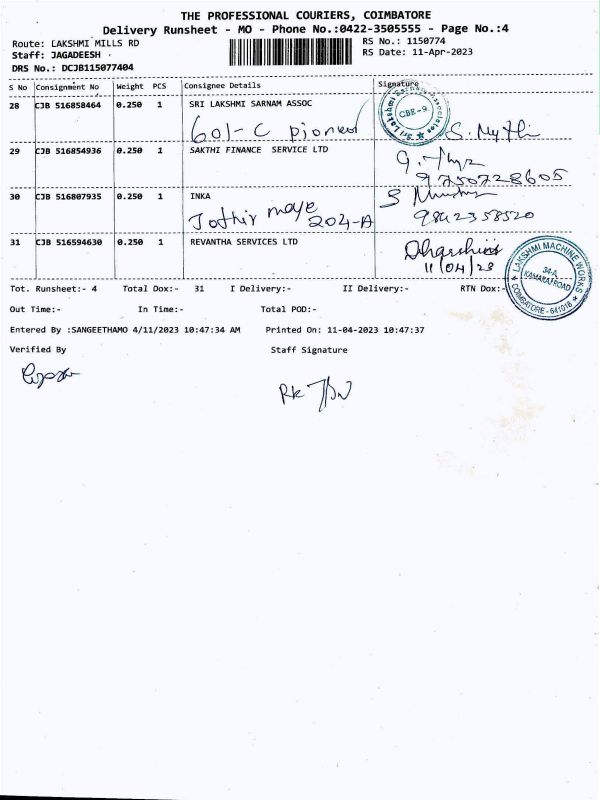 THE PROFESSIONAL COURIERS, COIMBATORE
Delivery Runsheet - MO - Phone No.:0422-3505555 - Page No.:4
Route: LAKSHMI MILLS RD RS No.: 1150774
Staff: JAGADEESH . RS Date: 11-Apr-2023
DRS No.: DCJB115077404
S No Consignment No Weight PCS Consignee Details Signature
28 CJB 516858464 0.250 1 SRI LAKSHMI SARNAM ASSOC
601-C pioneer
CBE-9
29 CJB 516854936 0.250 1 SAKTHI FINANCE SERVICE LTD
9750728605
30 CJB 516807935 0.250 1 INKA
204-A 9842358520
31 CJB 516594630 0.250 1 REVANTHA SERVICES LTD
11/04/23
LAKSHMI MACHINE WORKS
34-A,
KAMARAJ ROAD
COIMBATORE - 641018
Tot. Runsheet:- 4 Total Dox:- 31 I Delivery:- II Delivery:- RTN Dox:-
Out Time:- In Time:- Total POD:-
Entered By :SANGEETHAMO 4/11/2023 10:47:34 AM Printed On: 11-04-2023 10:47:37
Verified By Staff Signature